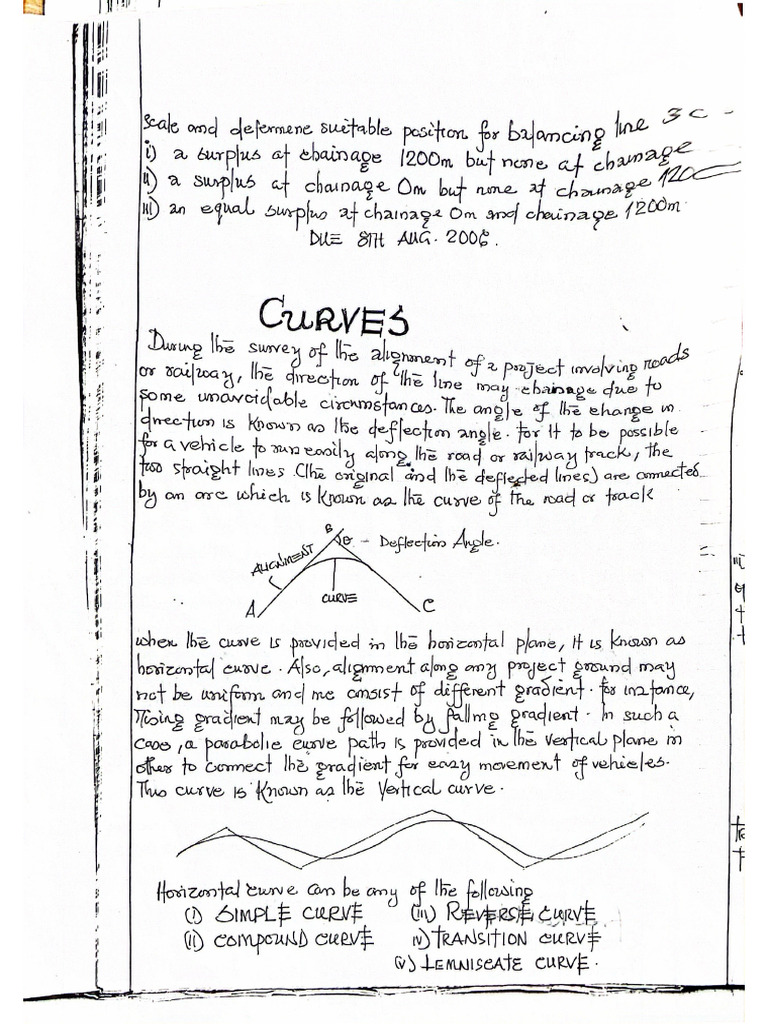 Scale and determene suitable position for balancing line 3 c -
i) a surplus at chainage 1200m but none at chainage
ii) a surplus at chainage 0m but none at chainage 120
iii) an equal surplus at chainage 0m and chainage 1200m.
DUE 8TH AUG. 2006.
CURVES
During the survey of the alignment of a project involving roads
or railway, the direction of the line may chainage due to
some unavoidable circumstances. The angle of the change in
direction is known as the deflection angle. for it to be possible
for a vehicle to run easily along the road or railway track, the
two straight lines (the original and the deflected lines) are connected
by an arc which is known as the curve of the road or track
B
θ - Deflection Angle.
ALIGNMENT
CURVE
A
C
when the curve is provided in the horizontal plane, it is known as
horizontal curve. Also, alignment along any project ground may
not be uniform and me consist of different gradient. for instance,
rising gradient may be followed by falling gradient. In such a
case, a parabolic curve path is provided in the vertical plane in
other to connect the gradient for easy movement of vehicles.
This curve is known as the vertical curve.
Horizontal curve can be any of the following
(i) SIMPLE CURVE (iii) REVERSE CURVE
(ii) COMPOUND CURVE iv) TRANSITION CURVE
(v) LEMNISCATE CURVE.